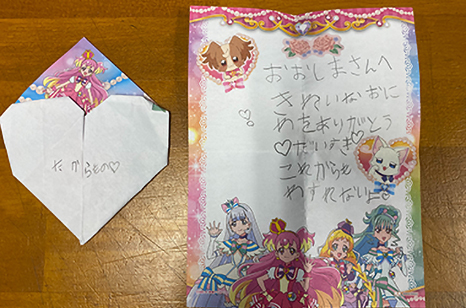 たからもの♡
おおしまさんへ
きれいなおに
わをありがとう
♡だいすき♡
これからも
わすれないよ